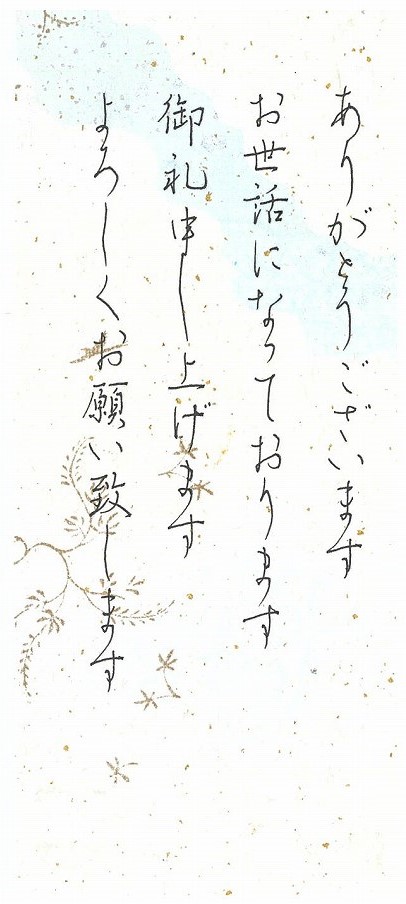 ありがとうございます
お世話になっております
御礼申し上げます
よろしくお願い致します